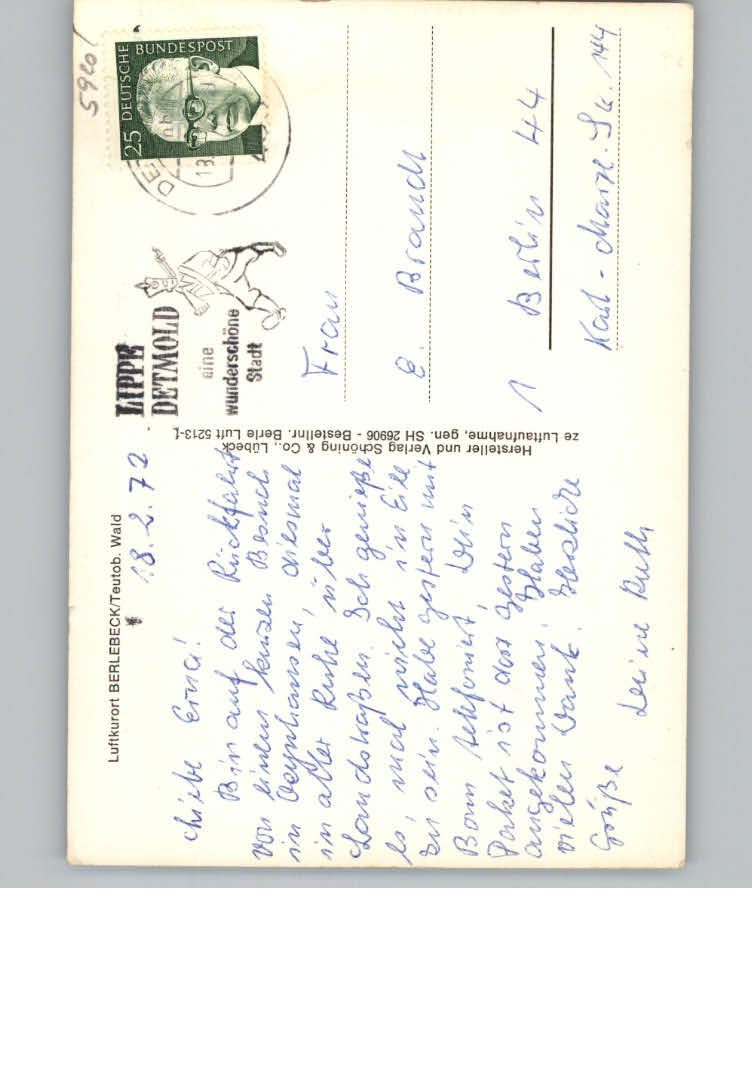 Luftkurort BERLEBECK/Teutob. Wald
18.2.72
Liebe Erna!
Bin auf der Rückfahrt
von einem kurzen Besuch
in Oeynhausen, diesmal
in aller Ruhe über
Landstraßen. Ich genieße
es, mal nicht in Eile
zu sein. Habe gestern mit
Bonn telefoniert, Dein
Paket ist dort gestern
angekommen. Haben
vielen Dank! Herzliche
Grüße Deine Ruth
Hersteller und Verlag Schöning & Co., Lübeck
ze Luftaufnahme, gen. SH 26906 - Bestellnr. Berle Luft 5213-L
LIPPE
DETMOLD
eine
wunderschöne
Stadt
25 DEUTSCHE BUNDESPOST
5920/
Frau
E. Brandt
1 Berlin 44
Karl-Marx-Str. 144